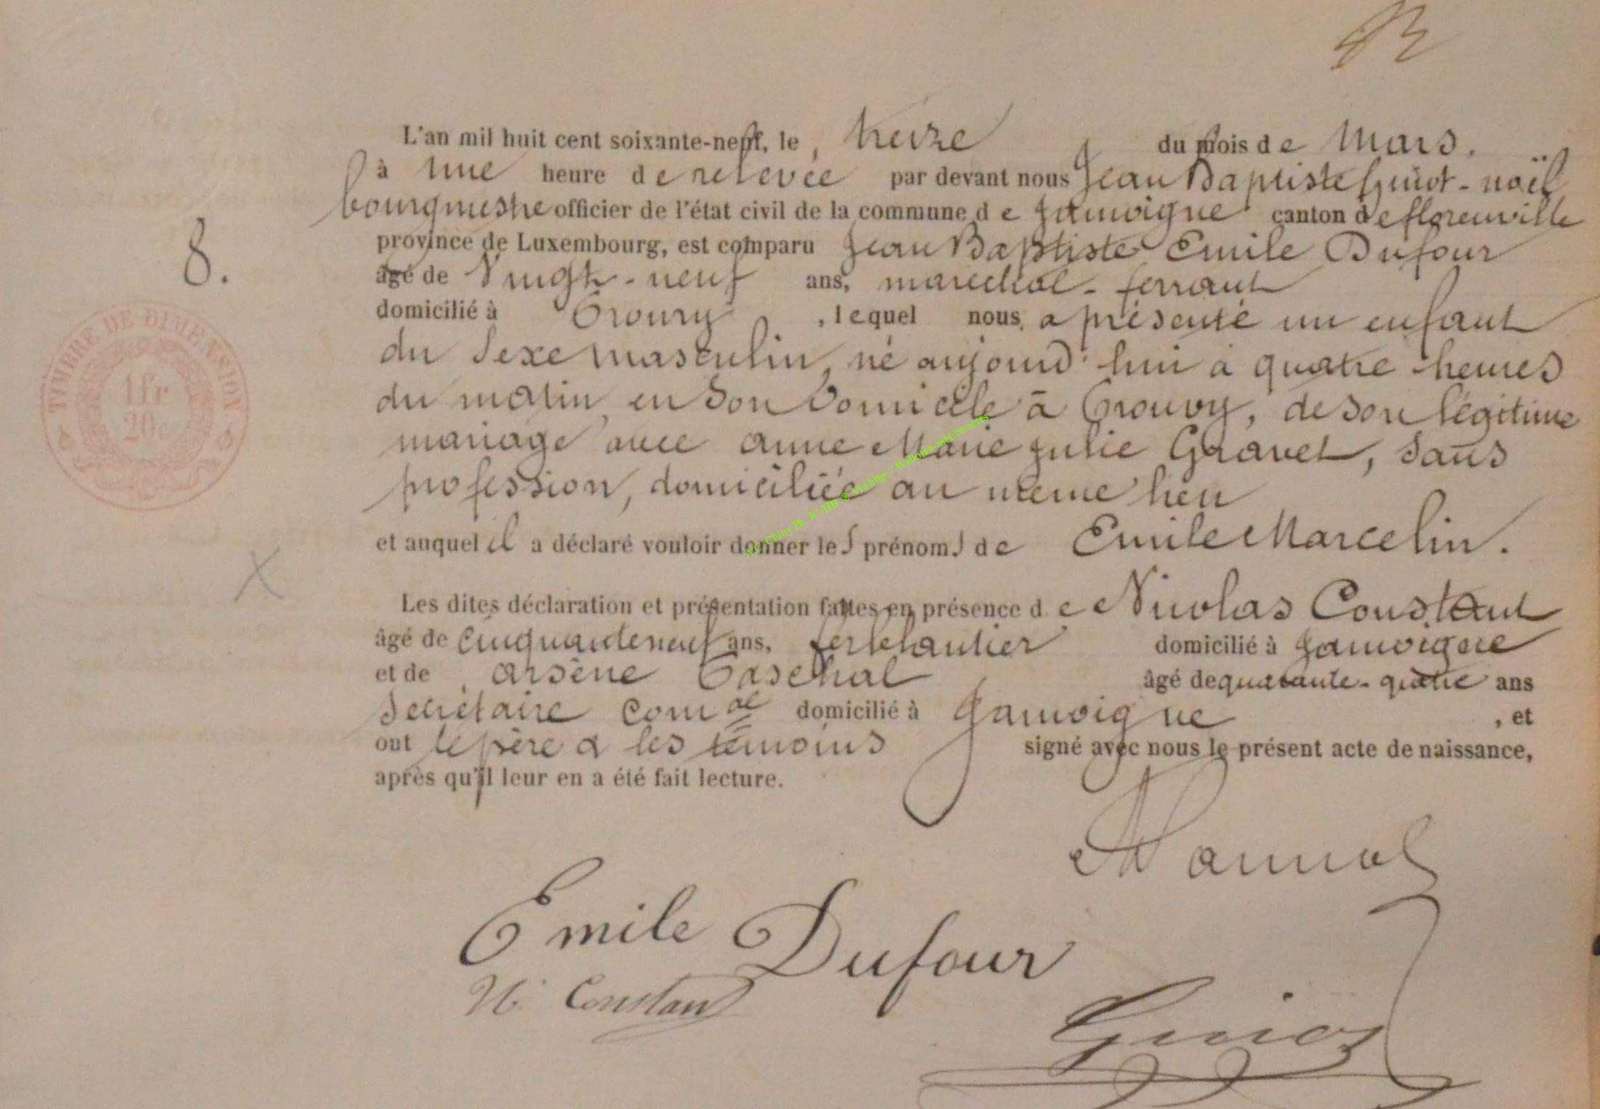 L'an mil huit cent soixante-neuf, le treize du mois de Mars.
à une heure de relevée par devant nous Jean Baptiste Guiot-noël
bourgmestre officier de l'état civil de la commune de Jamoigne canton de florenville
province de Luxembourg, est comparu Jean Baptiste Emile Dufour
âgé de Vingt-neuf ans, marechal-ferrant
8.
domicilié à , lequel nous a présenté un enfant
du sexe masculin, né aujourd'hui à quatre heures
TIMBRE DE DIMENSION
1 fr
20c
du matin en son domicile à , de son légitime
mariage avec anne Marie Julie Gravet, sans
profession, domiciliée au même lieu
et auquel il a déclaré vouloir donner les prénoms de Emile Marcelin.
X
Les dites déclaration et présentation faites en présence de Nicolas Constant
âgé de cinquante neuf ans, ferblantier domicilié à Jamoigne
et de arsène âgé de quarante-quatre ans
Secrétaire Com.al domicilié à Jamoigne , et
ont le père & les témoins signé avec nous le présent acte de naissance,
après qu'il leur en a été fait lecture.
Emile Dufour
N. Constant
Guiot